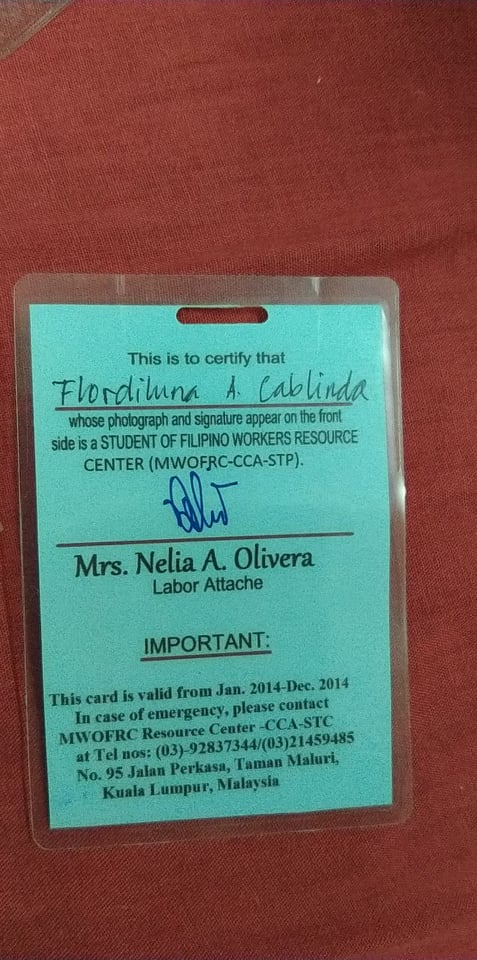 This is to certify that
Flordiluna A. Cablinda
whose photograph and signature appear on the front
side is a STUDENT OF FILIPINO WORKERS RESOURCE
CENTER (MWOFRC-CCA-STP).
Mrs. Nelia A. Olivera
Labor Attache
IMPORTANT:
This card is valid from Jan. 2014-Dec. 2014
In case of emergency, please contact
MWOFRC Resource Center -CCA-STC
at Tel nos: (03)-92837344/(03)21459485
No. 95 Jalan Perkasa, Taman Maluri,
Kuala Lumpur, Malaysia